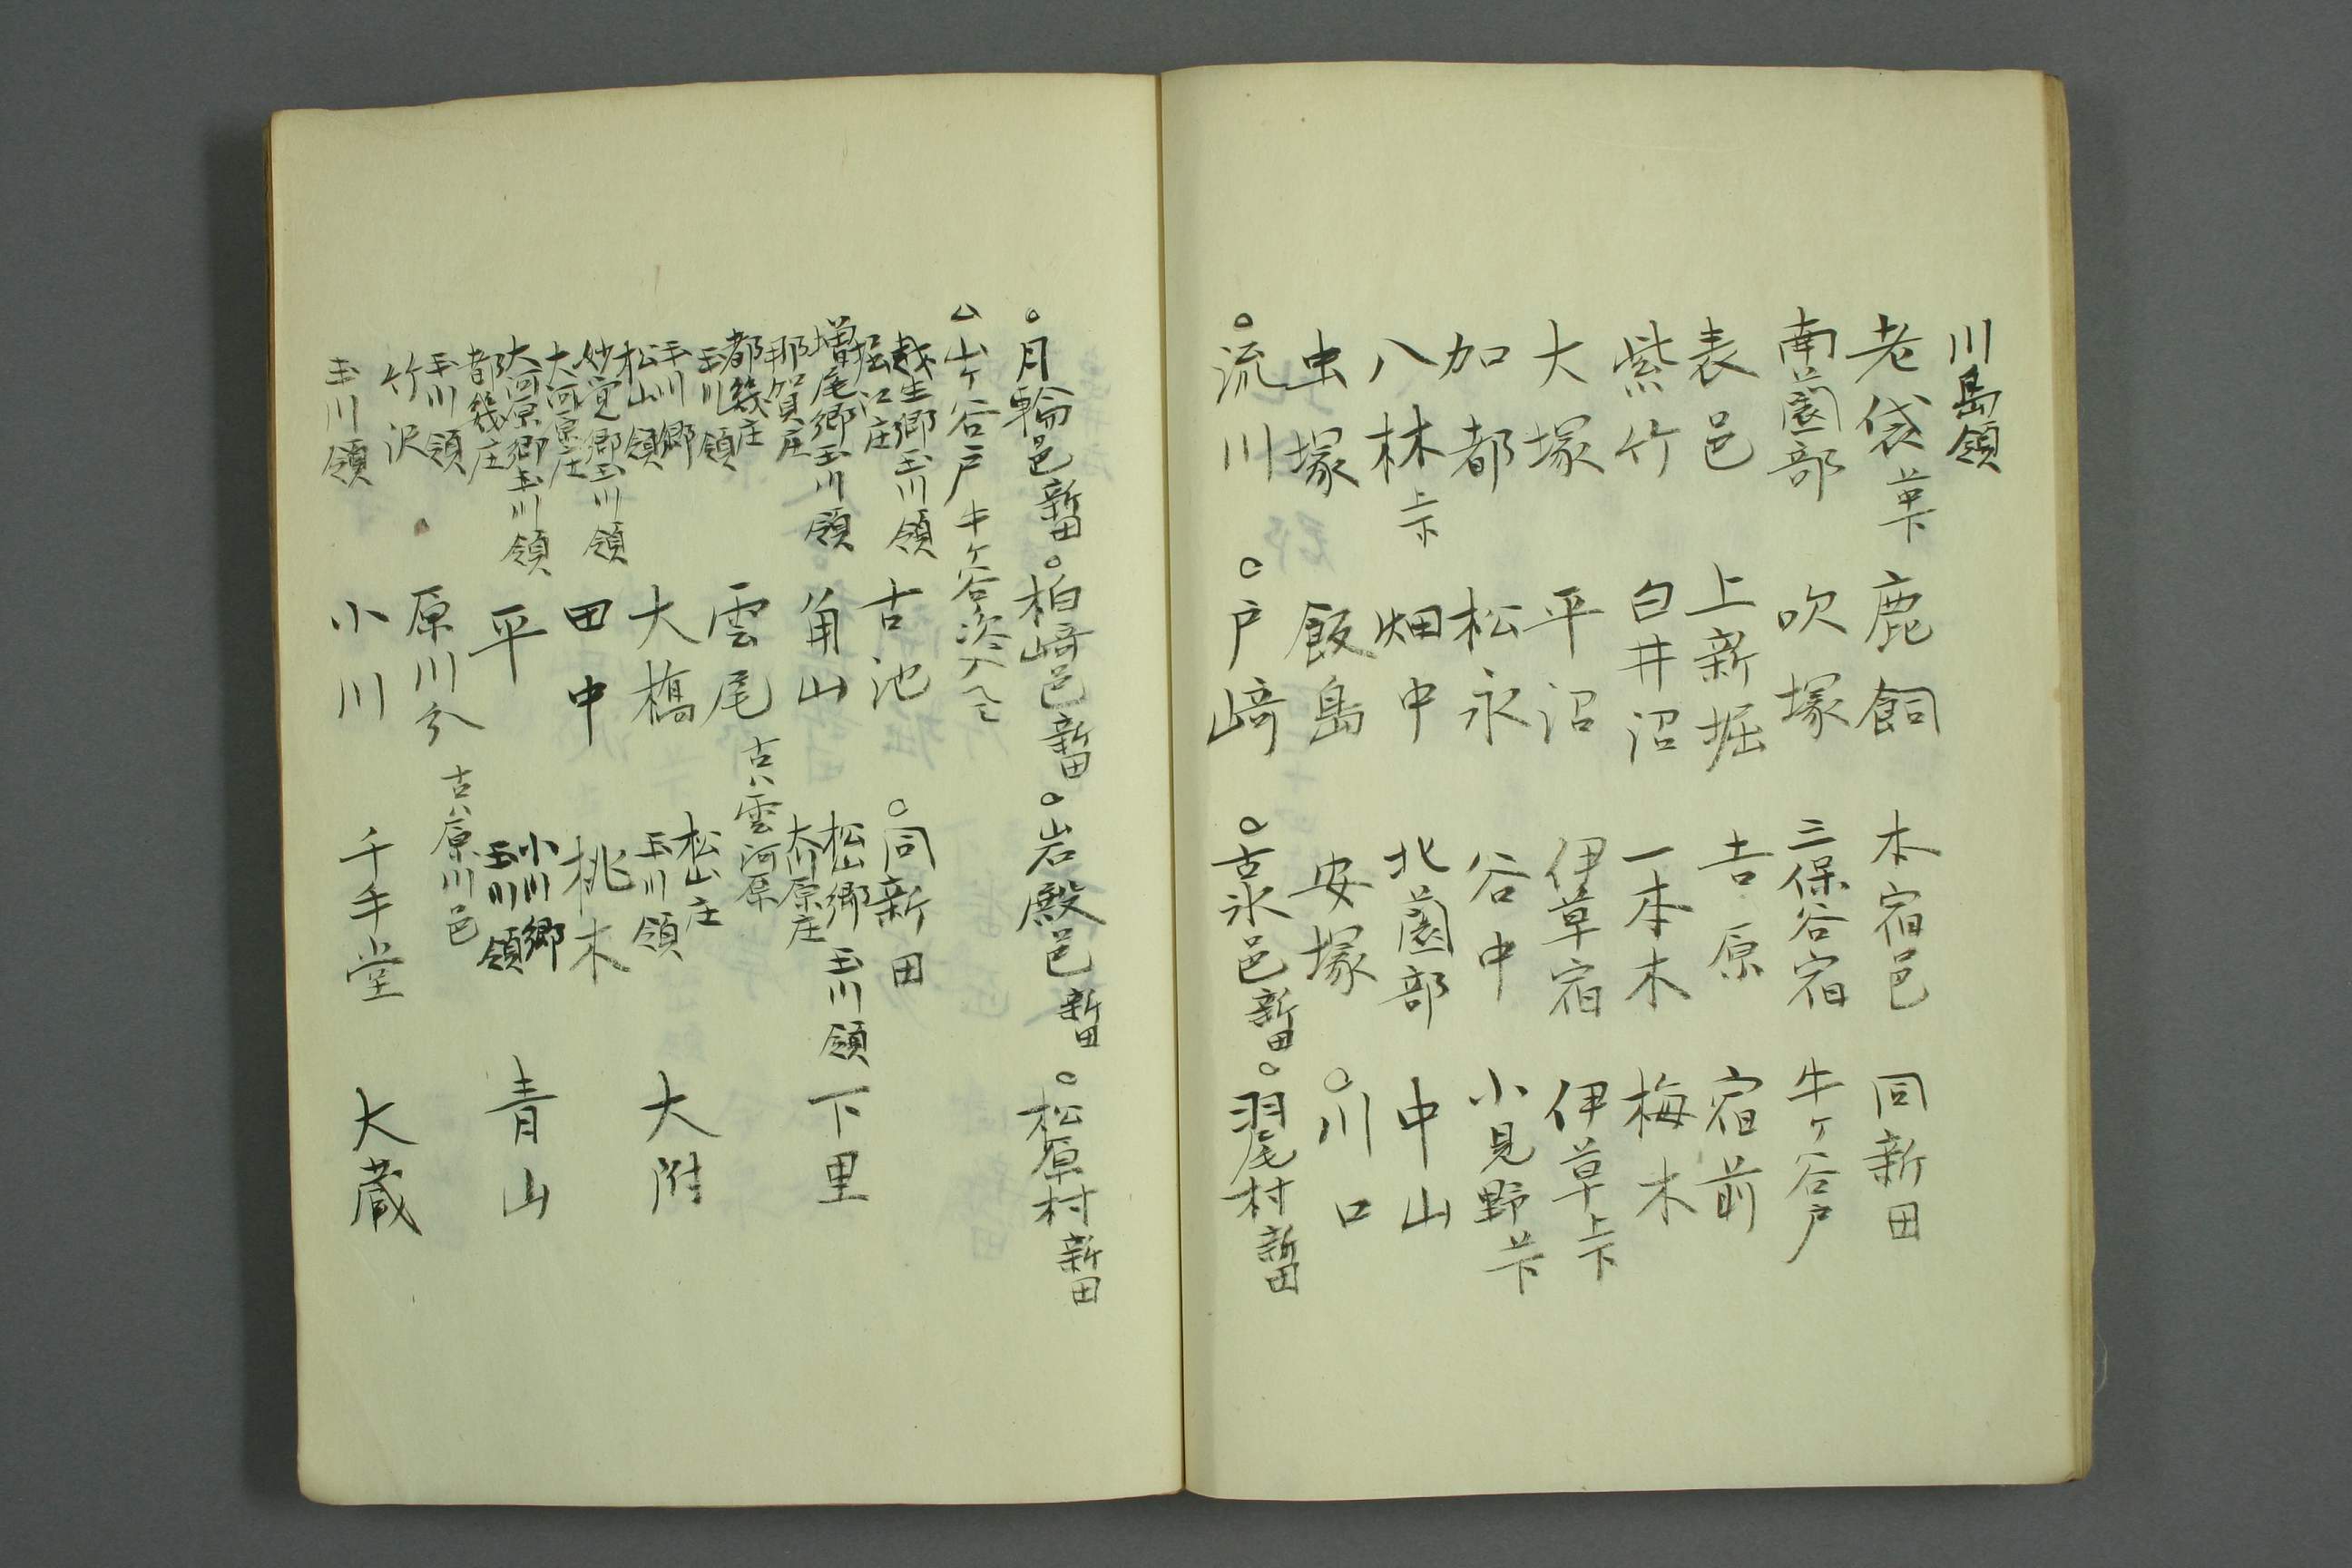 川島領
老袋 上中下 鹿飼 本宿邑 同新田
南薗部 吹塚 三保谷宿 牛ヶ谷戸
表邑 上新堀 吉原 宿前
紫竹 白井沼 一本木 梅木
大塚 平沼 伊草宿 伊草上下
加都 松永 谷中 小見野上下
八林上下 畑中 北薗部 中山
虫塚 飯島 安塚 ○川口
○流川 ○戸﨑 ○古氷邑新田 ○羽尾村新田
○月輪邑新田 ○柏﨑邑新田 ○岩殿邑新田 ○松原村新田
△山ヶ谷戸 牛ヶ谷
越生郷玉川領 堀江庄 古池 ○同新田
増尾郷玉川領 那賀庄 角山 松山郷玉川領 大川原庄 下里
都幾庄 玉川領 雲尾 古ハ雲河原
玉川郷 松山領 大橋 松山庄 玉川領 大附
妙覚郷玉川領 大河原庄 田中 桃木
大河原郷玉川領 都幾庄 平 小川郷 玉川領 青山
玉川領 竹沢 原川分 古ハ原川邑
玉川領 小川 千手堂 大蔵